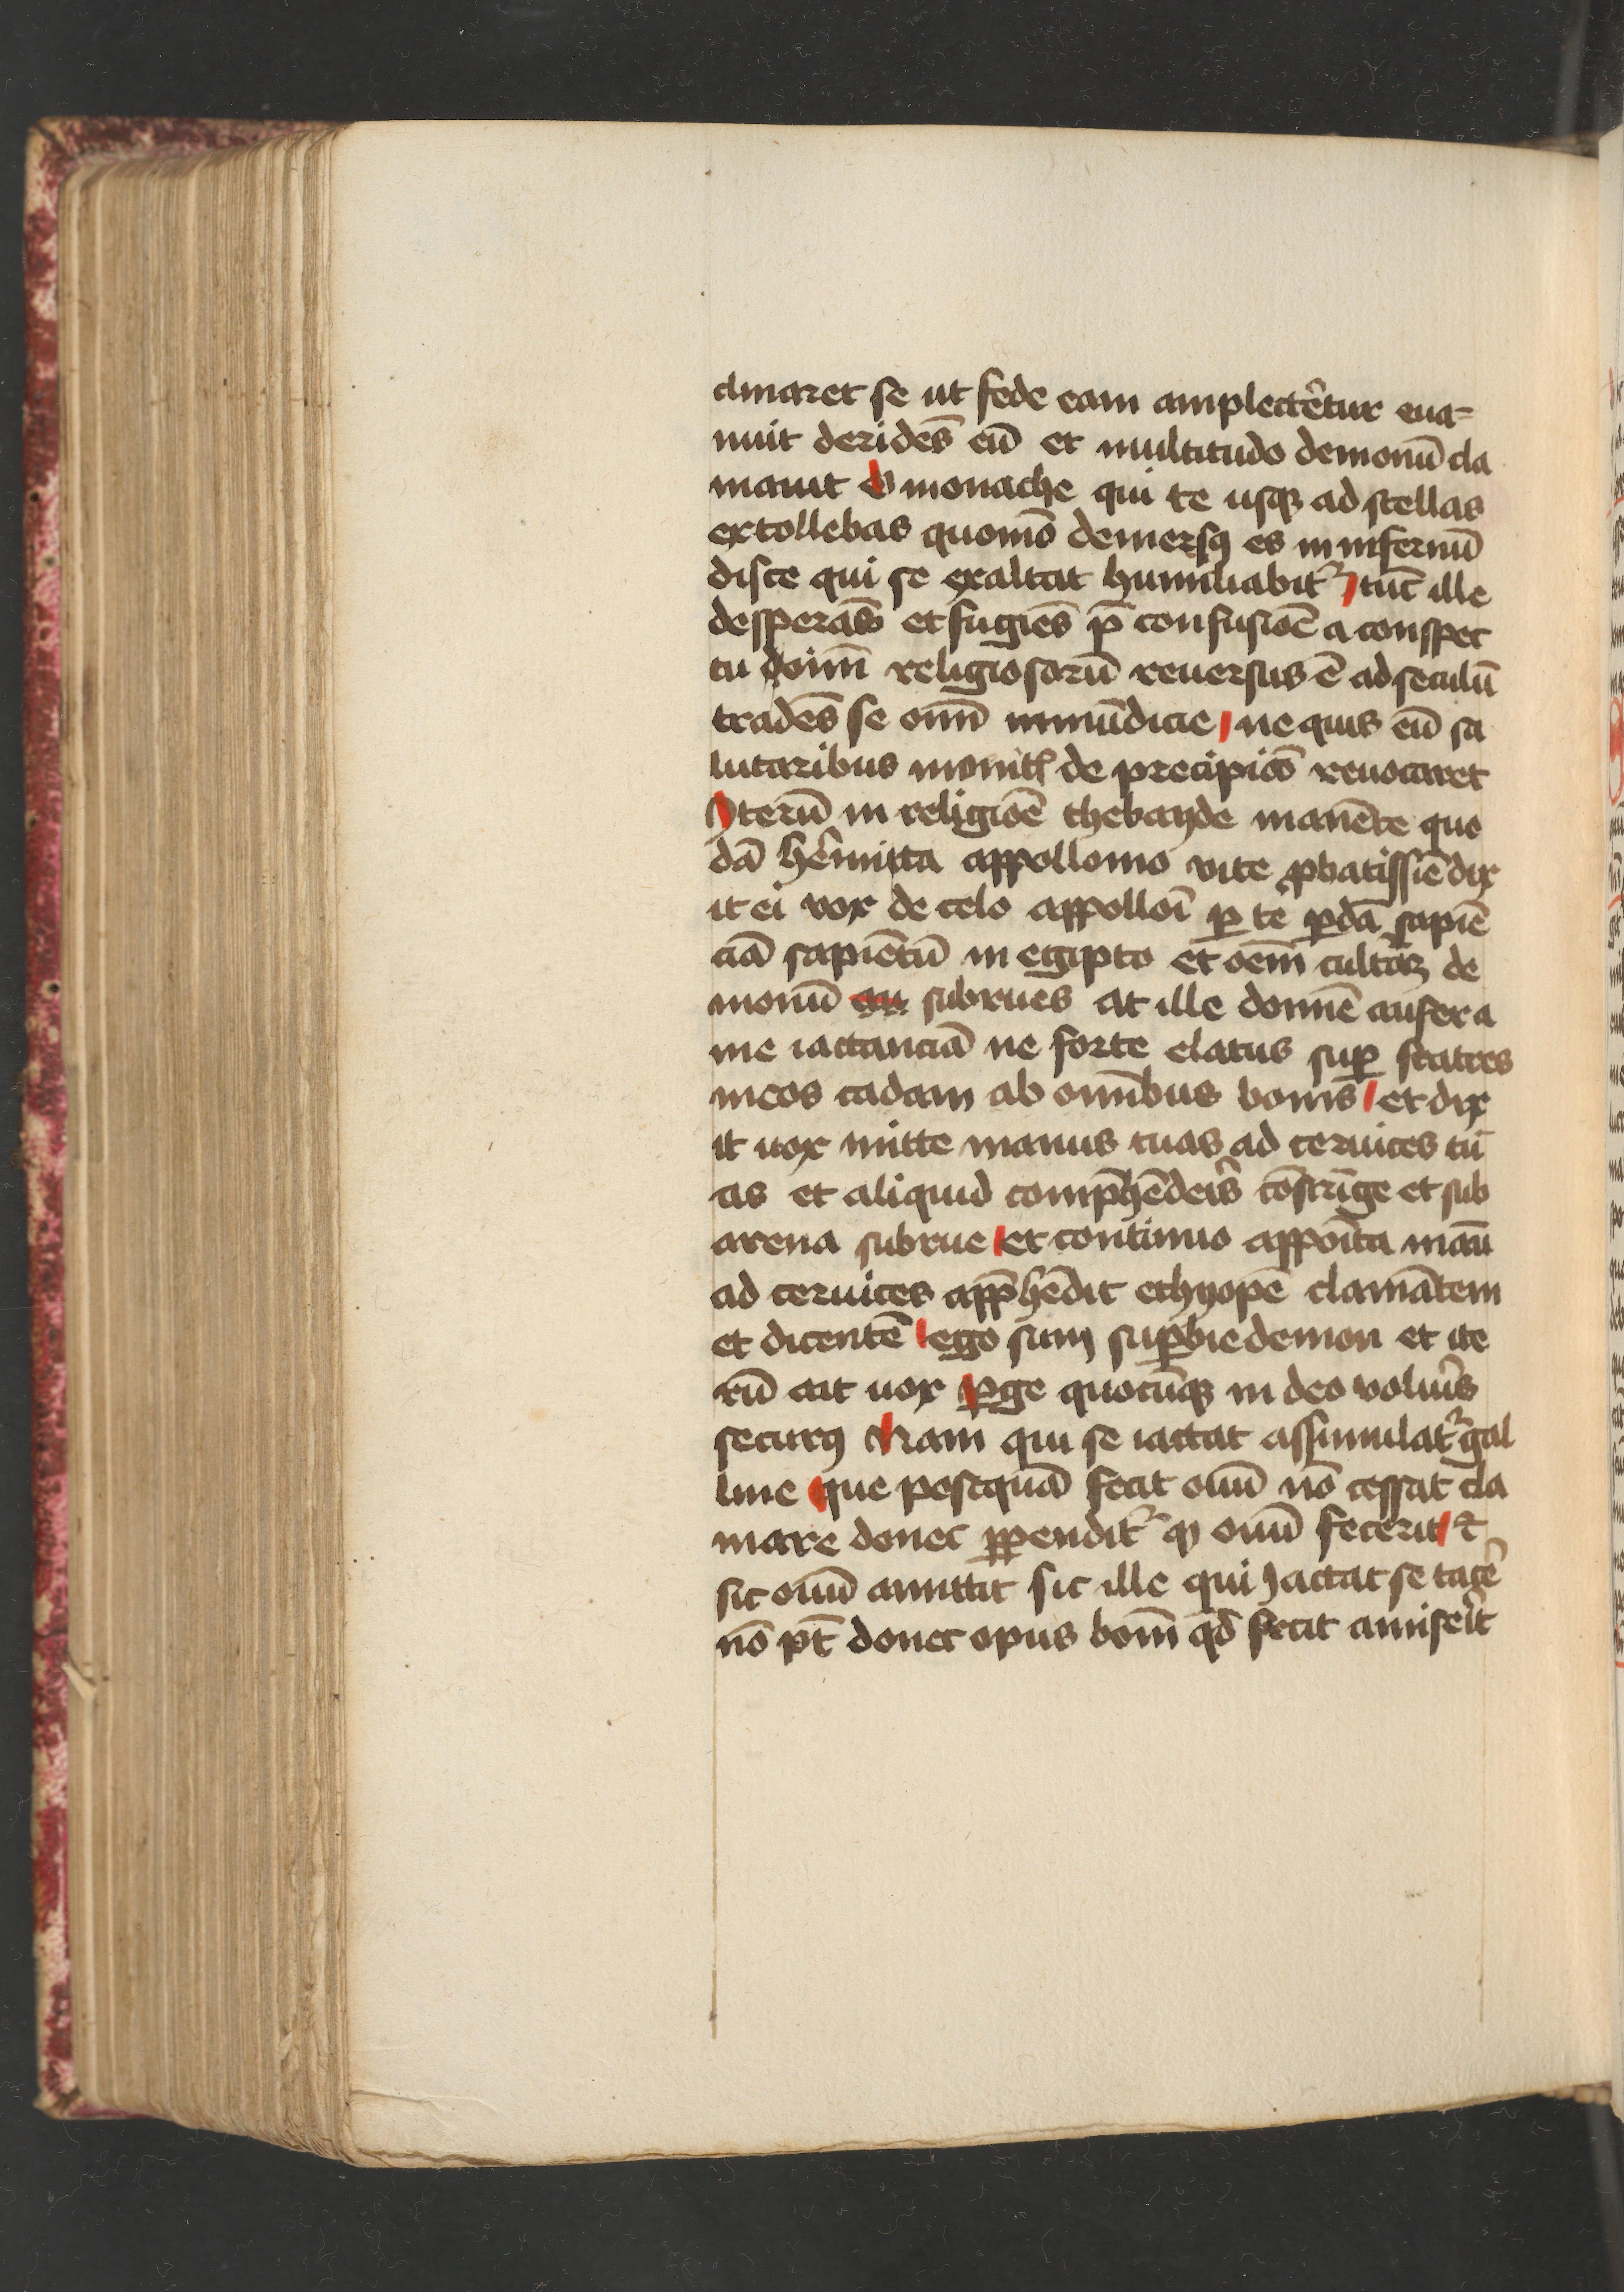 clinaret se ut fede eam amplectet̄tur eua-
nuit deridēs eū et multitudo demonū cla
mauit O monache qui te usqꝫ ad stellas
extollebas quomō demersꝯ es in infernū
disce qui se exaltat humiliabitᷣ tūc ille
desperās et fugiēs p̄ confusiōe a conspec
tu oīm religiosorū reuersus ē ad seculū
tradēs se omī inmūdicie ne quis eū sa
lutaribus monitꝭ de precipicō reuocaret
Iterū in religiōe thebayde manēte quo
dā hērmitta appollonio vite ꝓbatissīe dix
it ei vox de celo appolloī ꝑ te ꝑdā sapiē
ciā sapiētū in egipto et oēm cultoꝝ de
monū subrues at ille domīe aufer a
me iactanciā ne forte elatus suꝑ fratres
meos cadam ab omībus bonis et dix
it uox mitte manus tuas ad ceruices tu
as et aliquid comp̄hēdeīs cōstrīge et sub
arena subrue et continuo appoīta manū
ad ceruices app̄hēdit ethyopē clamātem
et dicentē ego sum suꝑbie demon et ite
rū ait uox ꝑge quocūqꝫ in deo voluīs
securꝯ Nam qui se iactat assimulatᷣ gal
line que postquā fecit ouū nō cessat cla
mare donec ꝑpenditᷣ ꝙ ouū fecerit ⁊
sic ouū amittit sic ille qui Iactat se tacē
nō pt̄ donec opus bom̄ qd̄ fecit amiserit